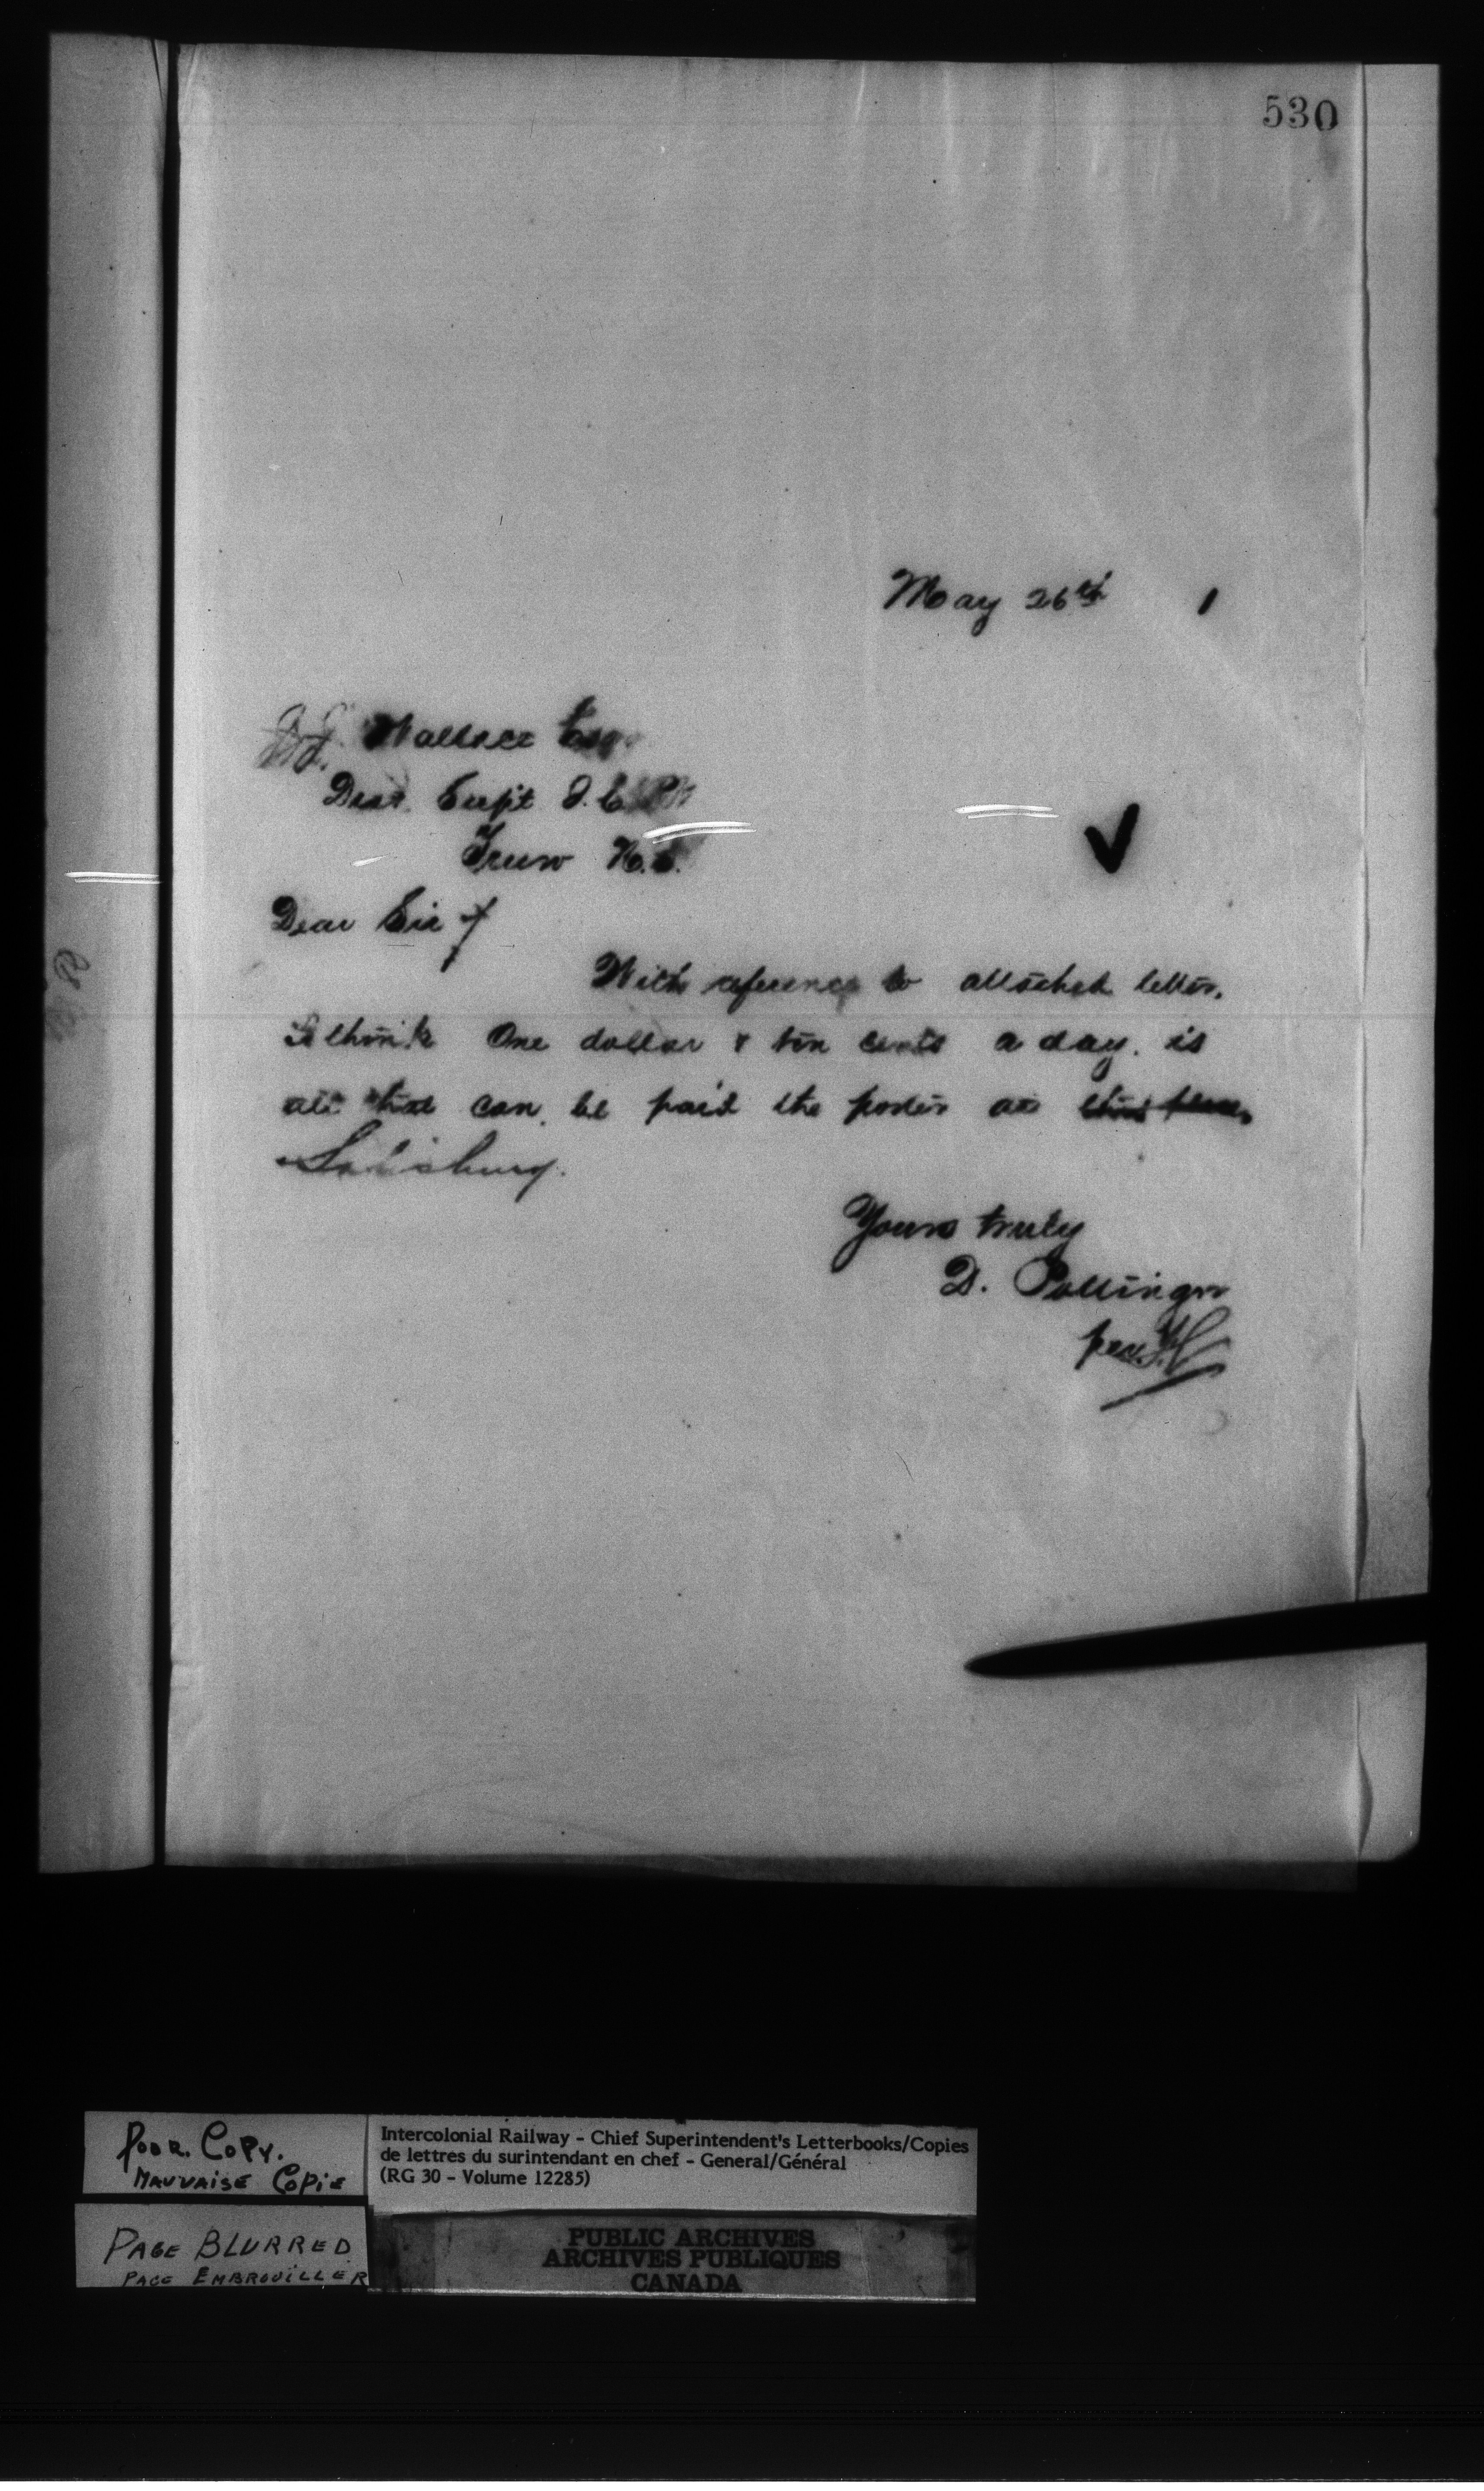 530
May 26th 1
J.J. Wallace Esq.
Dist. Supt I.C.Ry
Truro N.S.
Dear Sir
With reference to attached letter,
I think One dollar & ten cents a day. is
all that can be paid the porter at this place,
Salisbury.
Yours truly
D. Pottinger
per
POOR. COPY.
MAUVAISE COPIE
PAGE BLURRED
PAGE EMBROUILLER
Intercolonial Railway – Chief Superintendent's Letterbooks/Copies
de lettres du surintendant en chef – General/Général
(RG 30 – Volume 12285)
PUBLIC ARCHIVES
ARCHIVES PUBLIQUES
CANADA